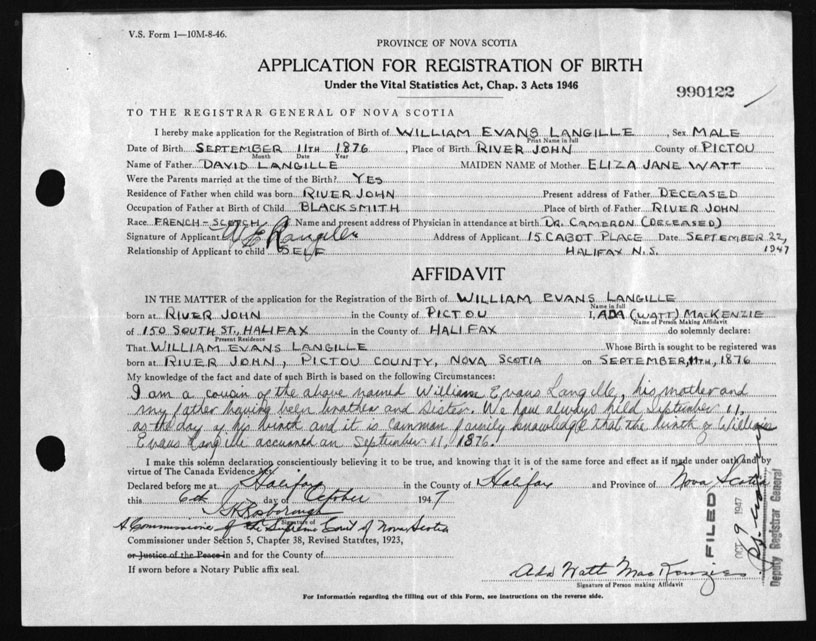 V.S. Form 1—10M-8-46.
PROVINCE OF NOVA SCOTIA
APPLICATION FOR REGISTRATION OF BIRTH
Under the Vital Statistics Act, Chap. 3 Acts 1946
990122
TO THE REGISTRAR GENERAL OF NOVA SCOTIA
I hereby make application for the Registration of Birth of WILLIAM EVANS LANGILLE, Sex MALE
Print Name in full
Date of Birth SEPTEMBER 11TH 1876, Place of Birth RIVER JOHN County of PICTOU
Month Date Year
Name of Father DAVID LANGILLE MAIDEN NAME of Mother ELIZA JANE WATT
Were the Parents married at the time of the Birth? YES
Residence of Father when child was born RIVER JOHN Present address of Father DECEASED
Occupation of Father at Birth of Child BLACKSMITH Place of birth of Father RIVER JOHN
Race FRENCH-SCOTCH Name and present address of Physician in attendance at birth DR. CAMERON (DECEASED)
Signature of Applicant W E Langille Address of Applicant 15 CABOT PLACE Date SEPTEMBER 22,
Relationship of Applicant to child SELF HALIFAX N.S. 1947
AFFIDAVIT
IN THE MATTER of the application for the Registration of the Birth of WILLIAM EVANS LANGILLE
Name in full
born at RIVER JOHN in the County of PICTOU I, ADA (WATT) MACKENZIE
Name of Person Making Affidavit
of 150 SOUTH ST., HALIFAX in the County of HALIFAX do solemnly declare:
Present Residence
That WILLIAM EVANS LANGILLE Whose Birth is sought to be registered was
born at RIVER JOHN, PICTOU COUNTY, NOVA SCOTIA on SEPTEMBER 11TH, 1876
My knowledge of the fact and date of such Birth is based on the following Circumstances:
I am a cousin of the above named William Evans Langille, his mother and
my father having been brother and sister. We have always held September 11,
as the day of his birth and it is common family knowledge that the birth of William
Evans Langille occurred on September 11, 1876.
I make this solemn declaration conscientiously believing it to be true, and knowing that it is of the same force and effect as if made under oath and by
virtue of The Canada Evidence Act
Declared before me at Halifax in the County of Halifax and Province of Nova Scotia
this 6th day of October 1947
Roxborough
A Commissioner of the Supreme Court of Nova Scotia
Signature of
Commissioner under Section 5, Chapter 38, Revised Statutes, 1923,
or Justice of the Peace in and for the County of
If sworn before a Notary Public affix seal.
Ada Watt MacKenzie
Signature of Person making Affidavit
For Information regarding the filling out of this Form, see instructions on the reverse side.
FILED
OCT 9 1947
Deputy Registrar General